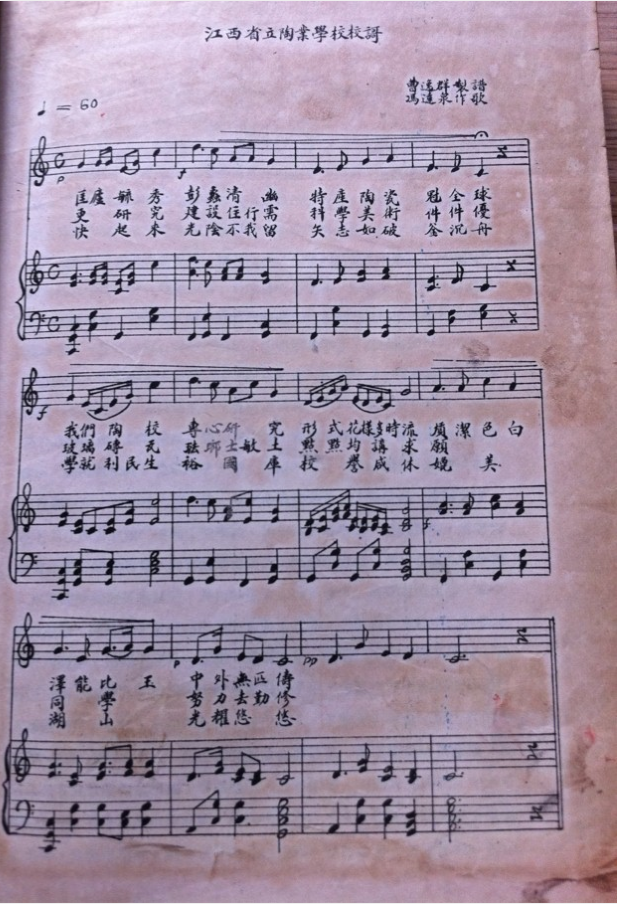 江西省立陶業學校校謌
曹逸群製譜
馮遠泉作歌
♩ = 60
p f
匡廬毓秀彭蠡清幽特產陶瓷冠全球
更研究建設住行需科學美術件件優
快起來光陰不我留矢志如破釜沉舟
f
我們陶校專心研究形式花樣多時流填潔色白
玻璃磚瓦琺瑯土敏土點點均講求願
學就利民生裕國庫校譽成休媲美
f
p pp
澤能比玉中外無匹儔
同學努力去勤修
湖山光耀悠悠